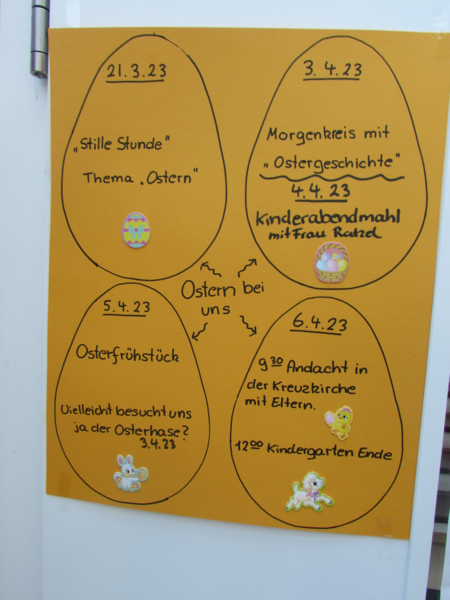 21.3.23
„Stille Stunde"
Thema „Ostern"
3.4.23
Morgenkreis mit
„Ostergeschichte"
4.4.23
Kinderabendmahl
mit Frau Ratzel
Ostern bei
uns
5.4.23
Osterfrühstück
Vielleicht besucht uns
ja der Osterhase?
3.4.23
6.4.23
9³⁰ Andacht in
der Kreuzkirche
mit Eltern.
12⁰⁰ Kindergarten Ende